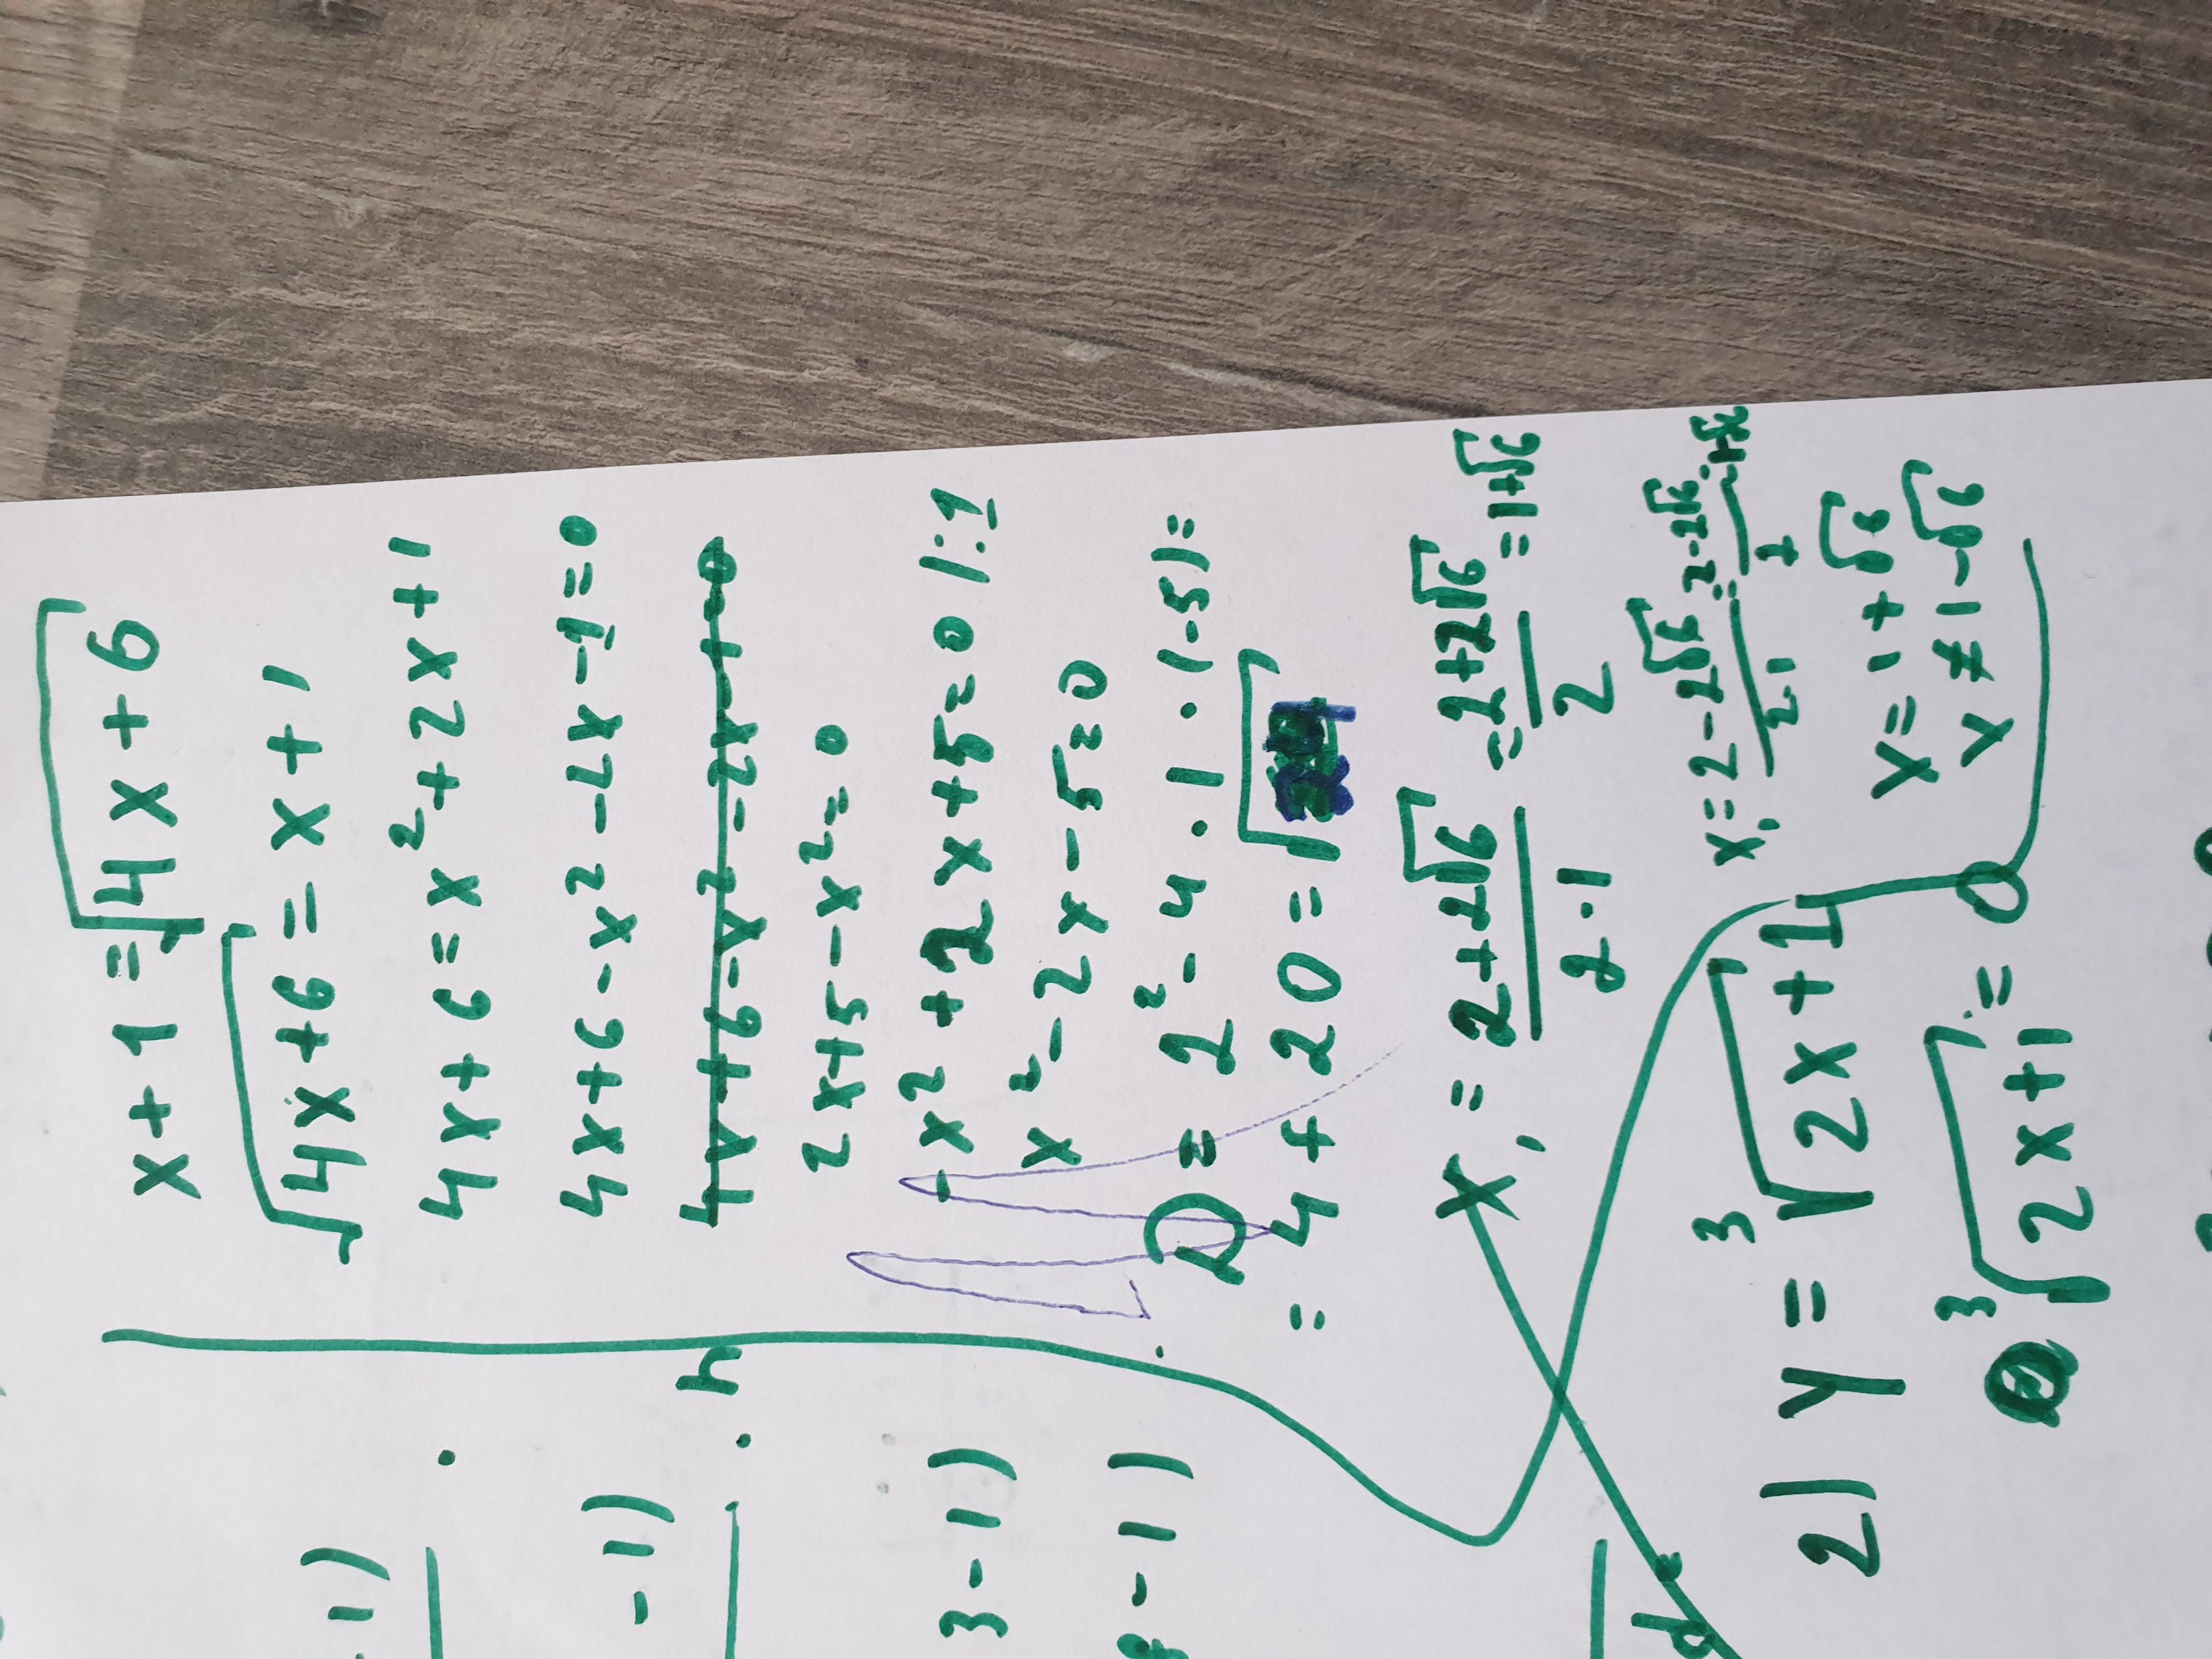 x + 1 = √4x + 6
√4x + 6 = x + 1
4x + 6 = x² + 2x + 1
4x + 6 - x² - 2x - 1 = 0
4x + 6 - x² - 2x - 1 = 0
2x + 5 - x² = 0
-x² + 2x + 5 = 0 |:1
x² - 2x - 5 = 0
D = 2² - 4 · 1 · (-5) =
= 4 + 20 = √
x₁ = 2+2√6 / 2·1 = 2+2√6 / 2 = 1+√6
x₁ = 2-2√6 / 2·1 = 2-2√6
x = 1 + √6
x ≠ 1 - √6
2) y = ³√2x + 1
³√2x + 1 = 0
-1)
-1) · 4
3 - 1)
- 1)